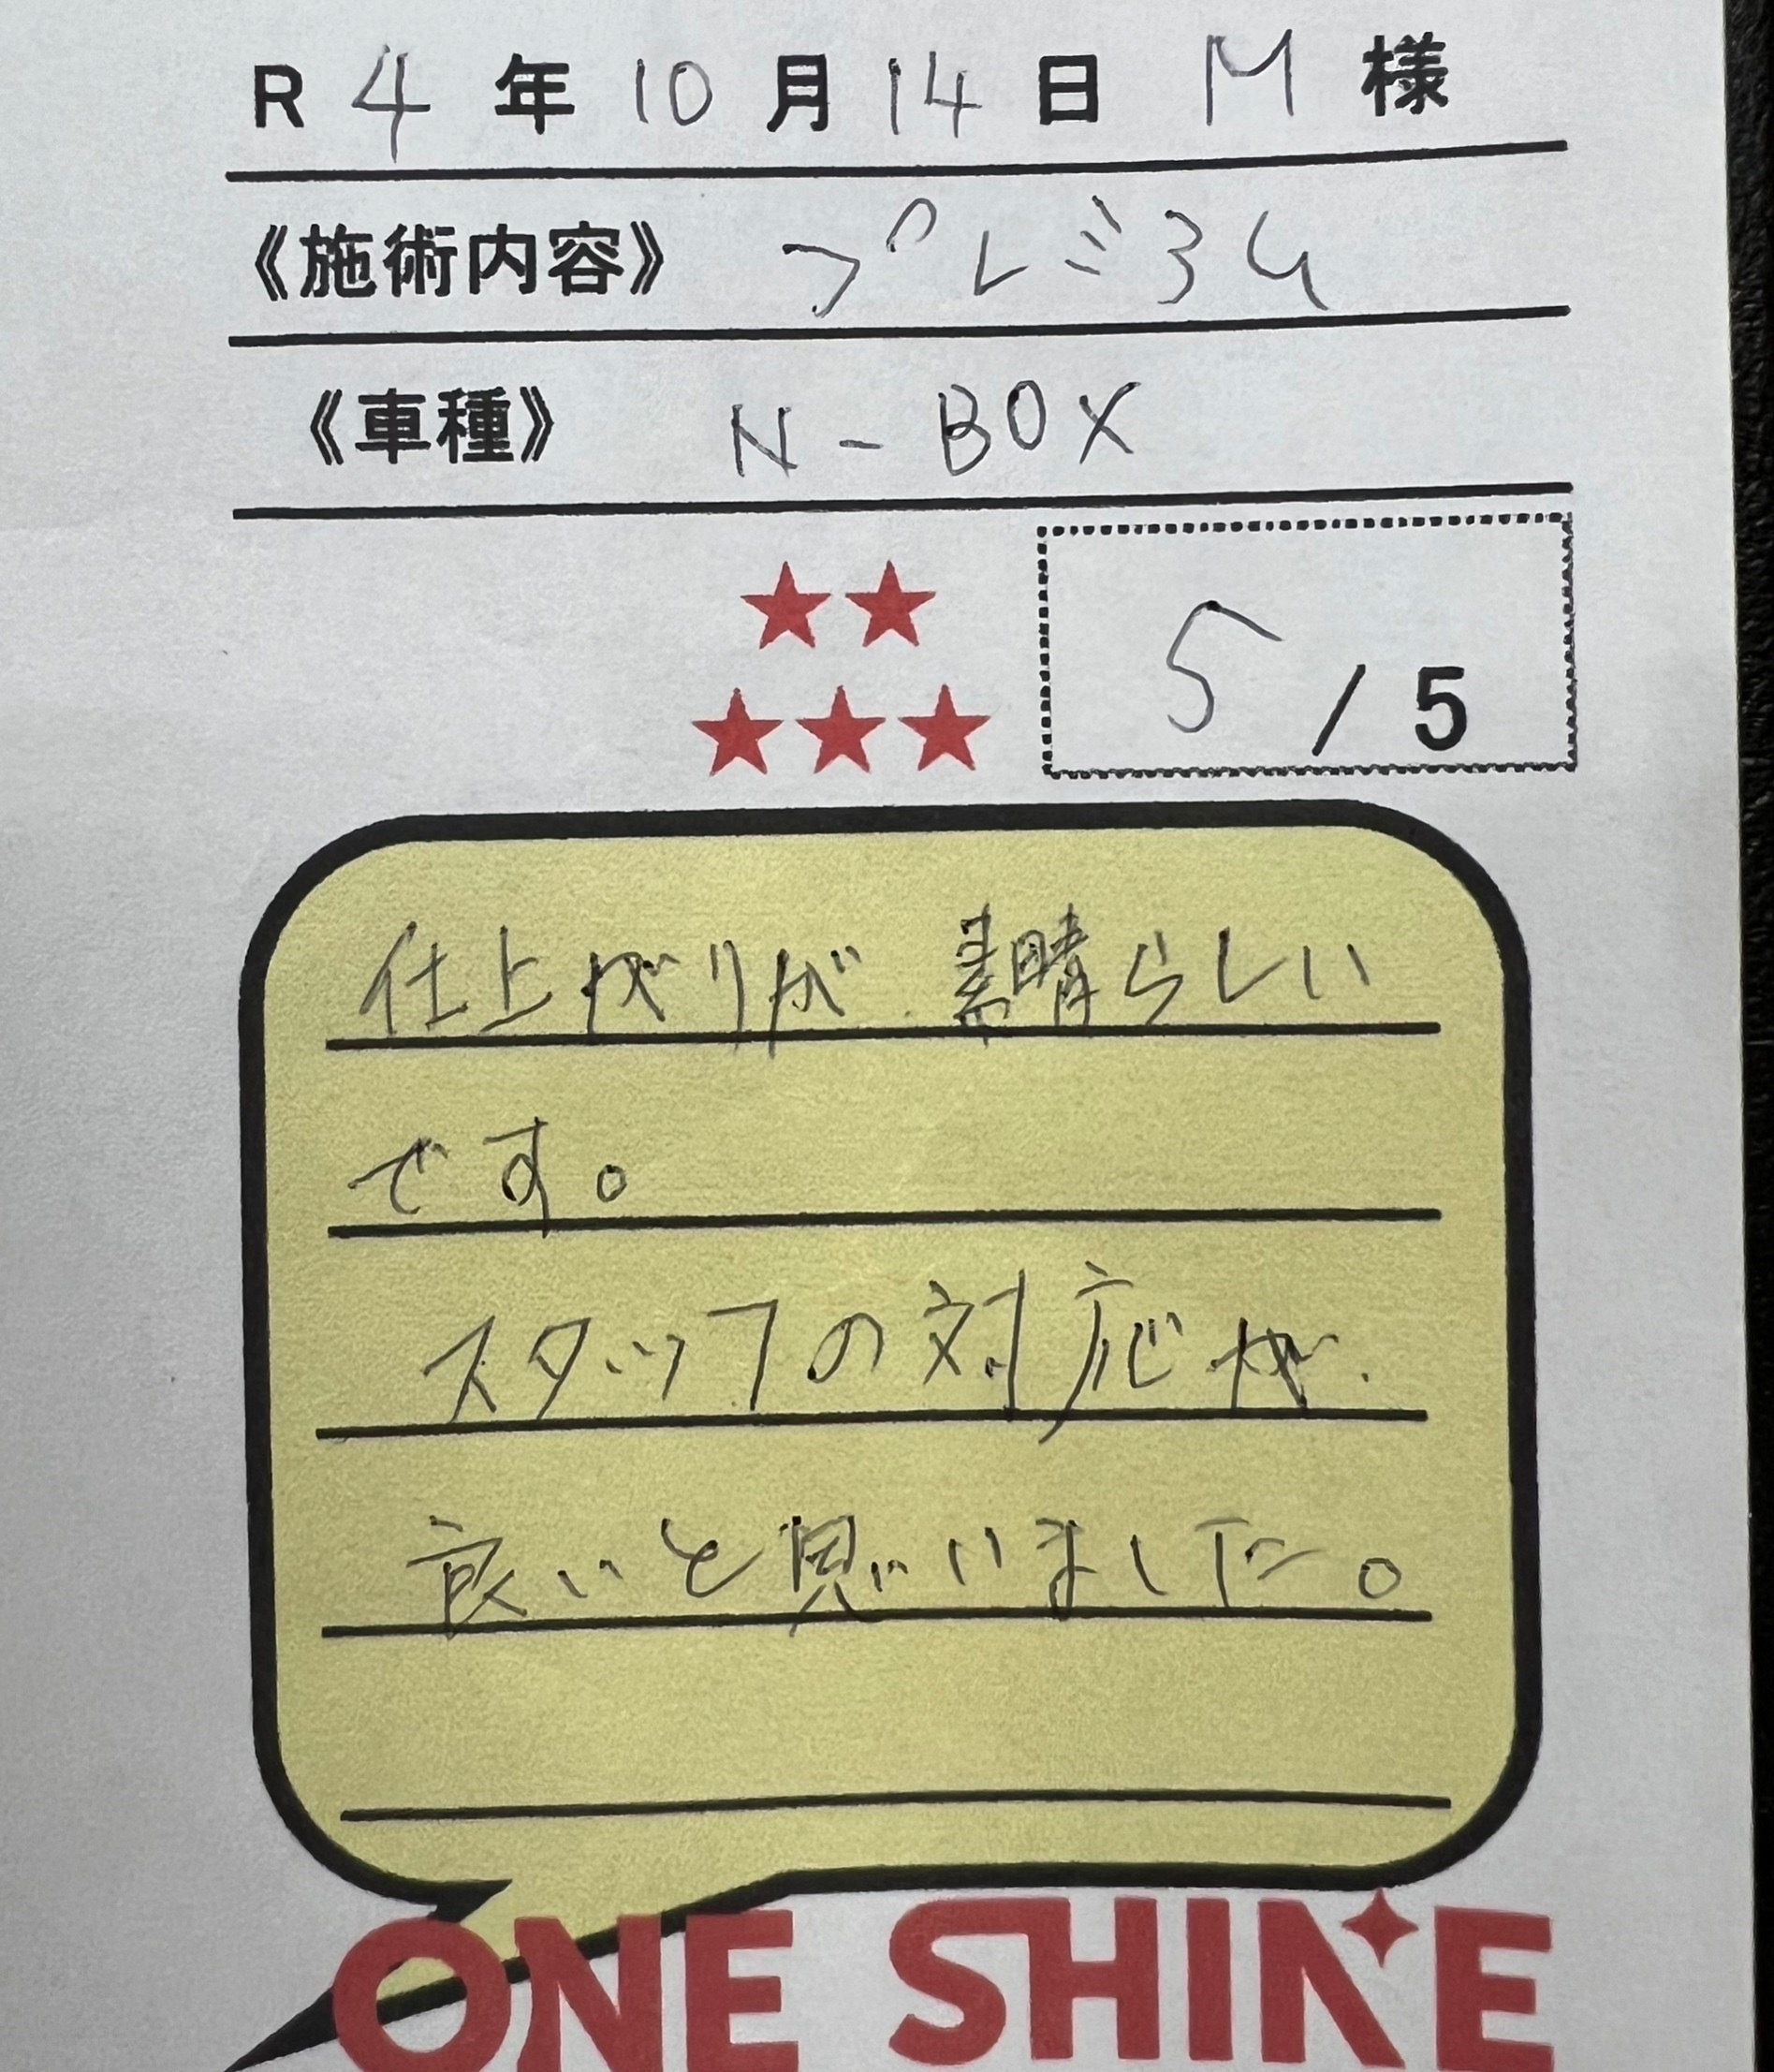 R 4 年 10 月 14 日 M 様
《施術内容》 プレミアム
《車種》 N-BOX
5 / 5
仕上がりが 素晴らしい
です。
スタッフの対応が
良いと思いました。
ONE SHINE